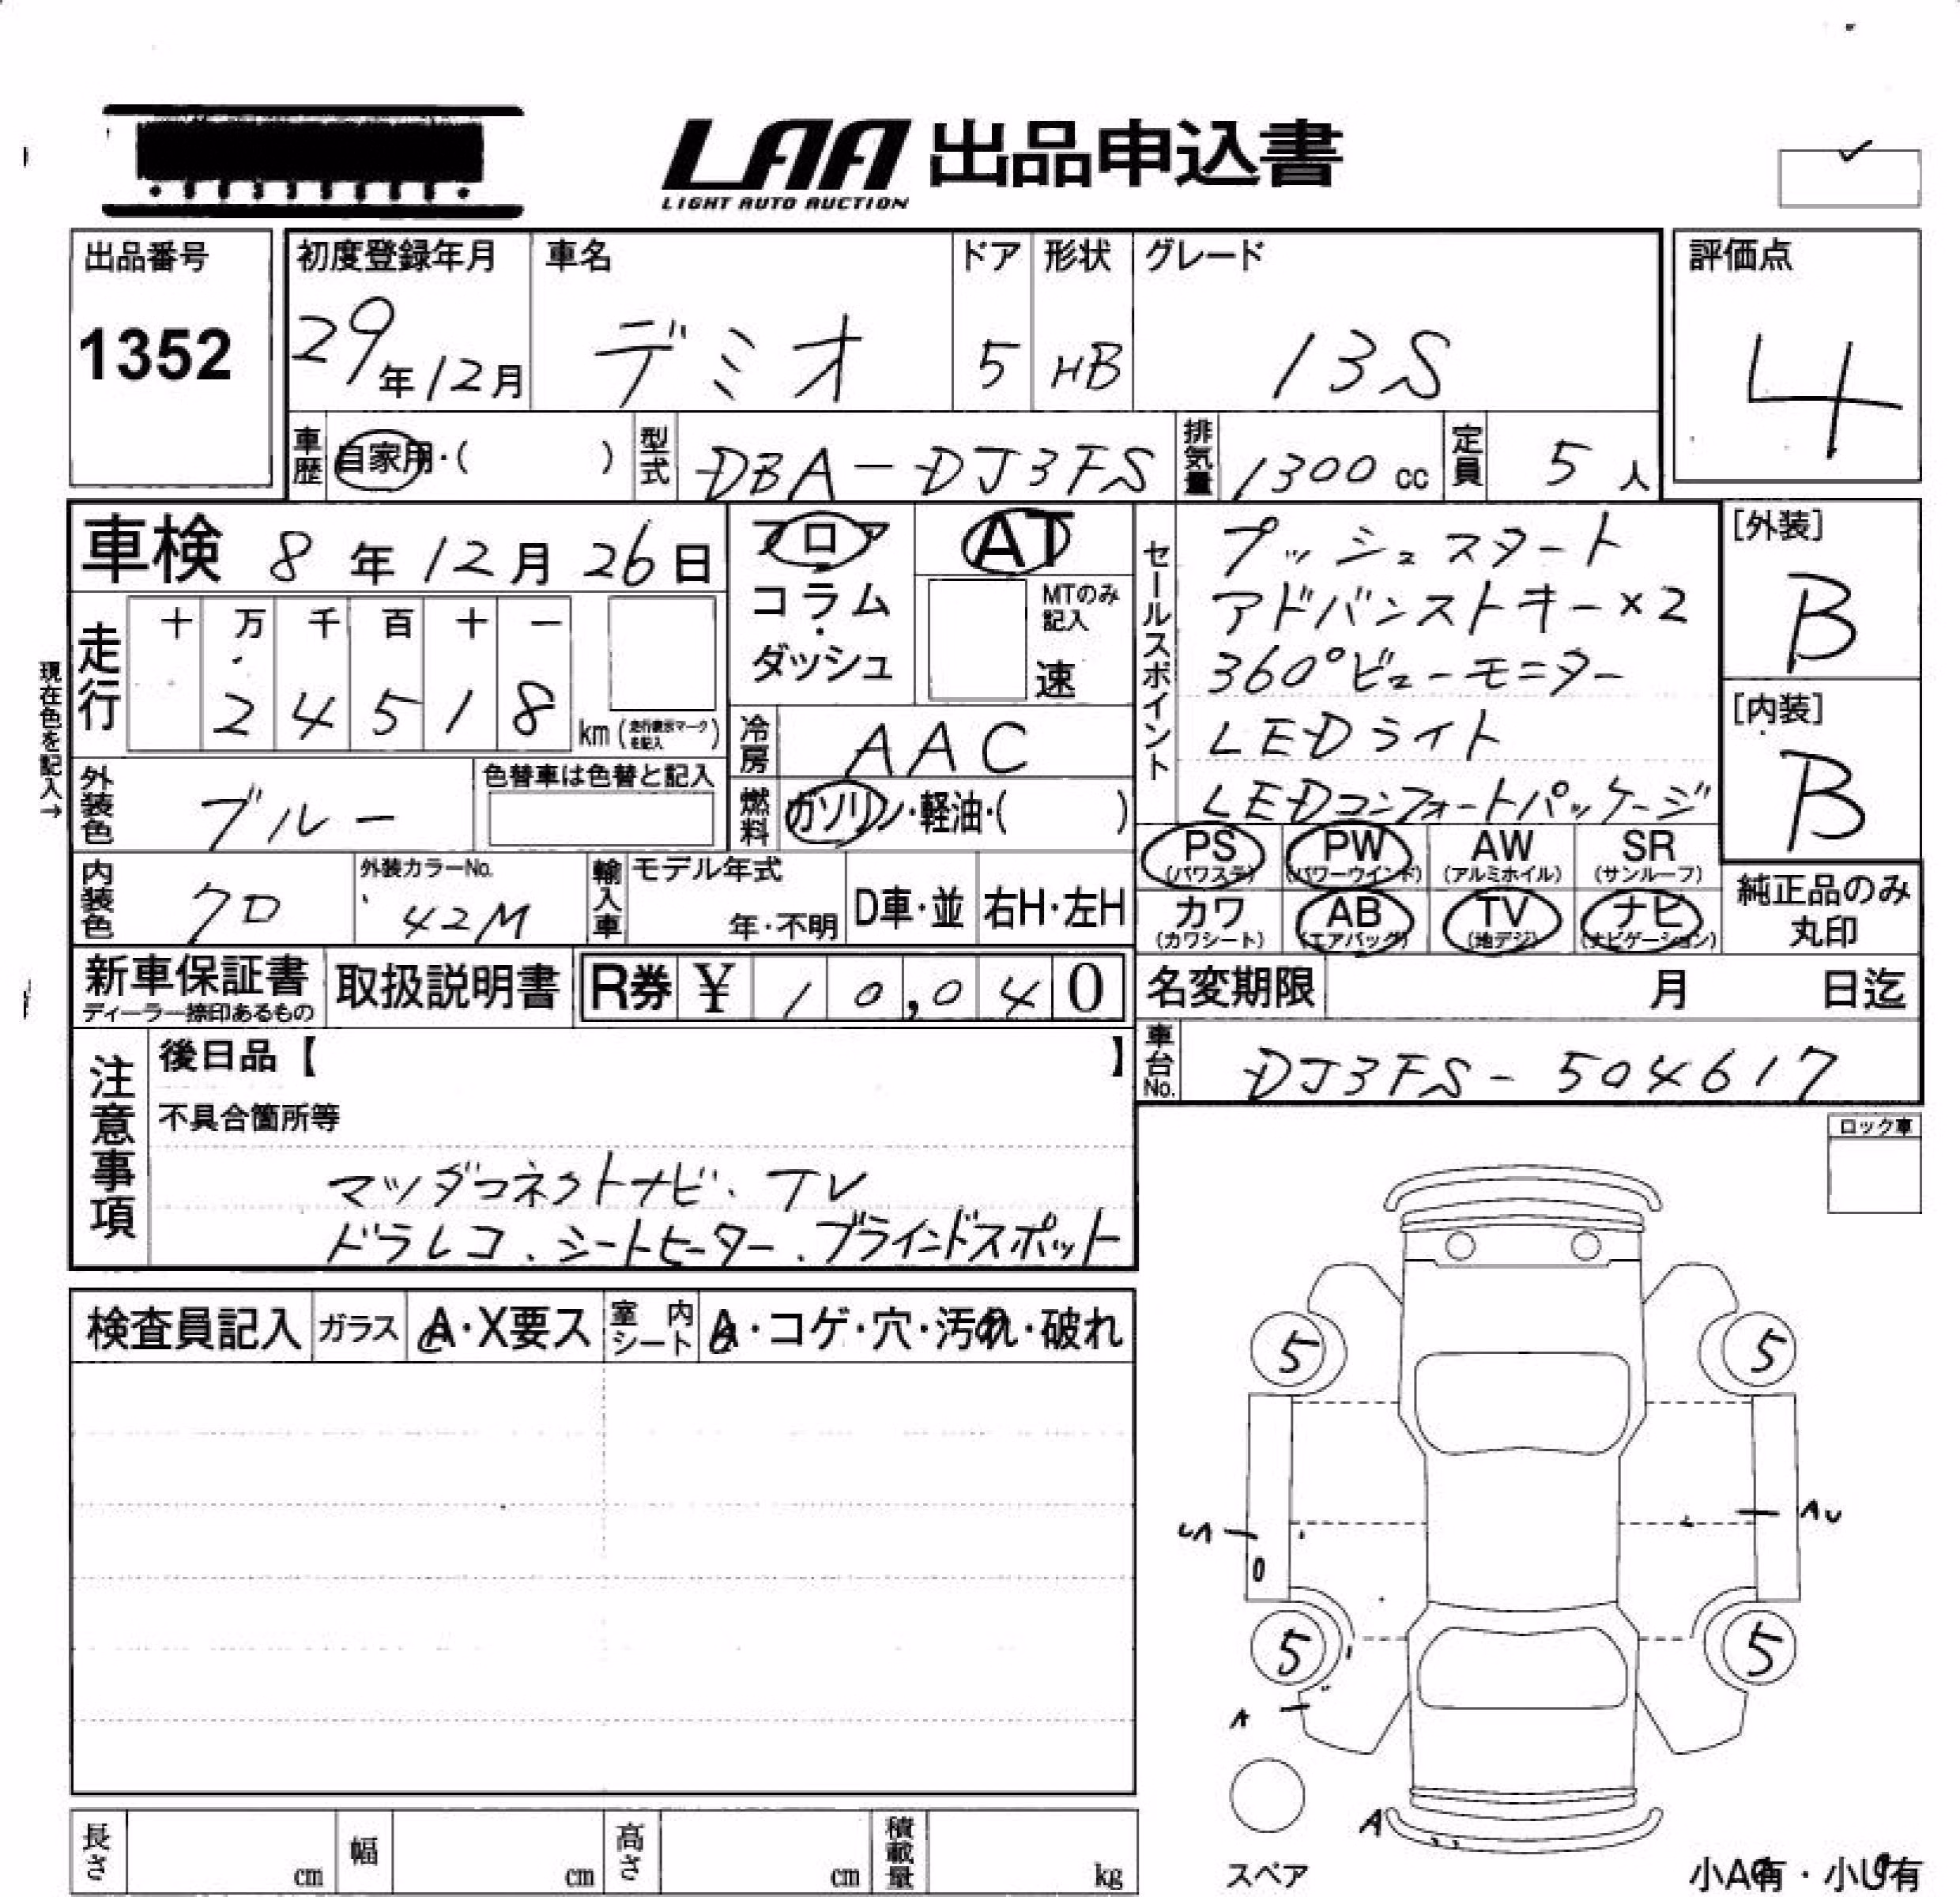 LAA 出品申込書
LIGHT AUTO AUCTION
出品番号
1352
初度登録年月
29年12月
車名
デミオ
ドア
5
形状
HB
グレード
13S
評価点
4
車歴
自家用・( )
型式
DBA-DJ3FS
排気量
1300cc
定員
5人
車検 8年12月26日
走行
十 万 千 百 十 一
2 4 5 1 8
km(走行表示マークを記入)
現在色を記入→
フロア
コラム
・
ダッシュ
AT
MTのみ記入
速
冷房
AAC
燃料
ガソリン・軽油・( )
外装色
ブルー
色替車は色替と記入
内装色
クロ
外装カラーNo.
42M
輸入車
モデル年式
年・不明
D車・並
右H・左H
セールスポイント
プッシュスタート
アドバンストキー×2
360°ビューモニター
LEDライト
LEDコンフォートパッケージ
[外装]
B
[内装]
B
PS
(パワステ)
PW
(パワーウインド)
AW
(アルミホイル)
SR
(サンルーフ)
カワ
(カワシート)
AB
(エアバッグ)
TV
(地デジ)
ナビ
(ナビゲーション)
純正品のみ
丸印
新車保証書
ディーラー捺印あるもの
取扱説明書
R券 ¥10,040
名変期限 月 日迄
車台No.
DJ3FS-504617
注意事項
後日品【 】
不具合箇所等
マツダコネクトナビ、TV
ドラレコ、シートヒーター、ブラインドスポット
ロック車
検査員記入
ガラス
A・X要ス
室内シート
A・コゲ・穴・汚れ・破れ
5
5
AU
5
5
A
A
スペア
小A有・小U有
長さ cm
幅 cm
高さ cm
積載量 kg